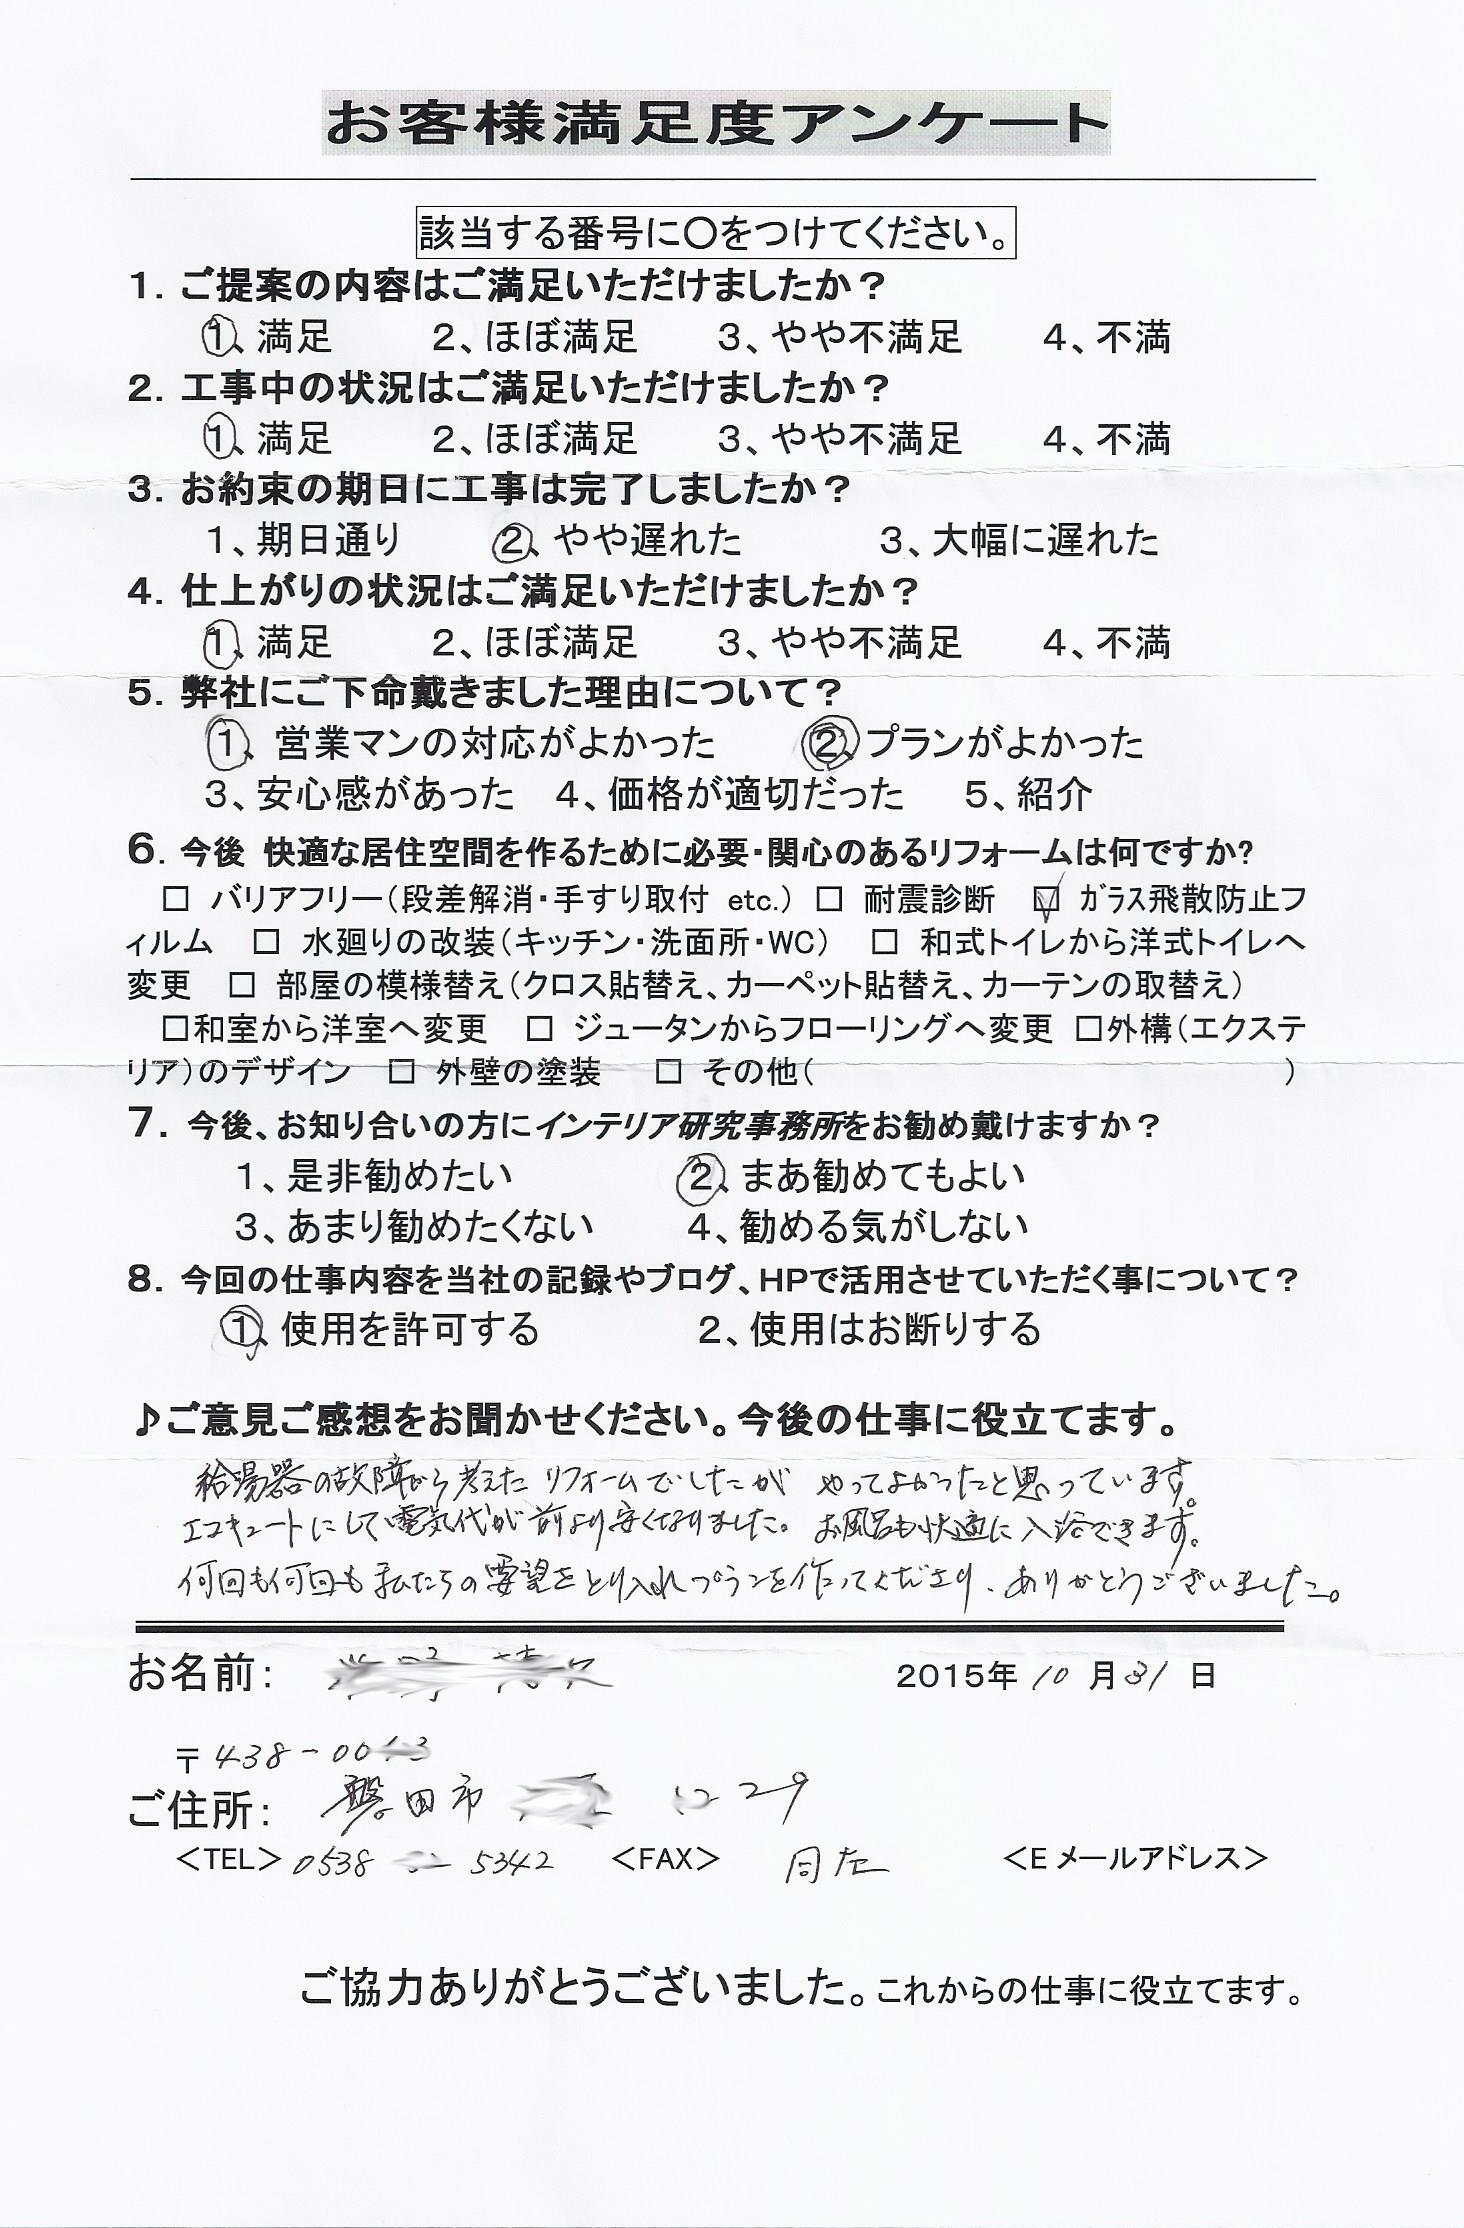 お客様満足度アンケート
該当する番号に〇をつけてください。
1. ご提案の内容はご満足いただけましたか？
1、満足 2、ほぼ満足 3、やや不満足 4、不満
2. 工事中の状況はご満足いただけましたか？
1、満足 2、ほぼ満足 3、やや不満足 4、不満
3. お約束の期日に工事は完了しましたか？
1、期日通り 2、やや遅れた 3、大幅に遅れた
4. 仕上がりの状況はご満足いただけましたか？
1、満足 2、ほぼ満足 3、やや不満足 4、不満
5. 弊社にご下命戴きました理由について？
1、営業マンの対応がよかった 2、プランがよかった
3、安心感があった 4、価格が適切だった 5、紹介
6. 今後 快適な居住空間を作るために必要・関心のあるリフォームは何ですか?
□ バリアフリー（段差解消・手すり取付 etc.） □ 耐震診断 ☑ ｶﾞﾗｽ飛散防止フ
ィルム □ 水廻りの改装（キッチン・洗面所・WC） □ 和式トイレから洋式トイレへ
変更 □ 部屋の模様替え（クロス貼替え、カーペット貼替え、カーテンの取替え）
□和室から洋室へ変更 □ ジュータンからフローリングへ変更 □外構（エクステ
リア）のデザイン □ 外壁の塗装 □ その他（ ）
7. 今後、お知り合いの方にインテリア研究事務所をお勧め戴けますか？
1、是非勧めたい 2、まあ勧めてもよい
3、あまり勧めたくない 4、勧める気がしない
8. 今回の仕事内容を当社の記録やブログ、HPで活用させていただく事について？
1、使用を許可する 2、使用はお断りする
♪ご意見ご感想をお聞かせください。今後の仕事に役立てます。
給湯器の故障から考えたリフォームでしたが やってよかったと思っています。
エコキュートにして電気代が前より安くなりました。お風呂も快適に入浴できます。
何回も何回も私たちの要望をとり入れプランを作ってくださり、ありがとうございました。
お名前： 2015年 10 月 31 日
〒438-00
ご住所： 磐田市 29
＜TEL＞0538 5342 ＜FAX＞ 同左 ＜E メールアドレス＞
ご協力ありがとうございました。これからの仕事に役立てます。